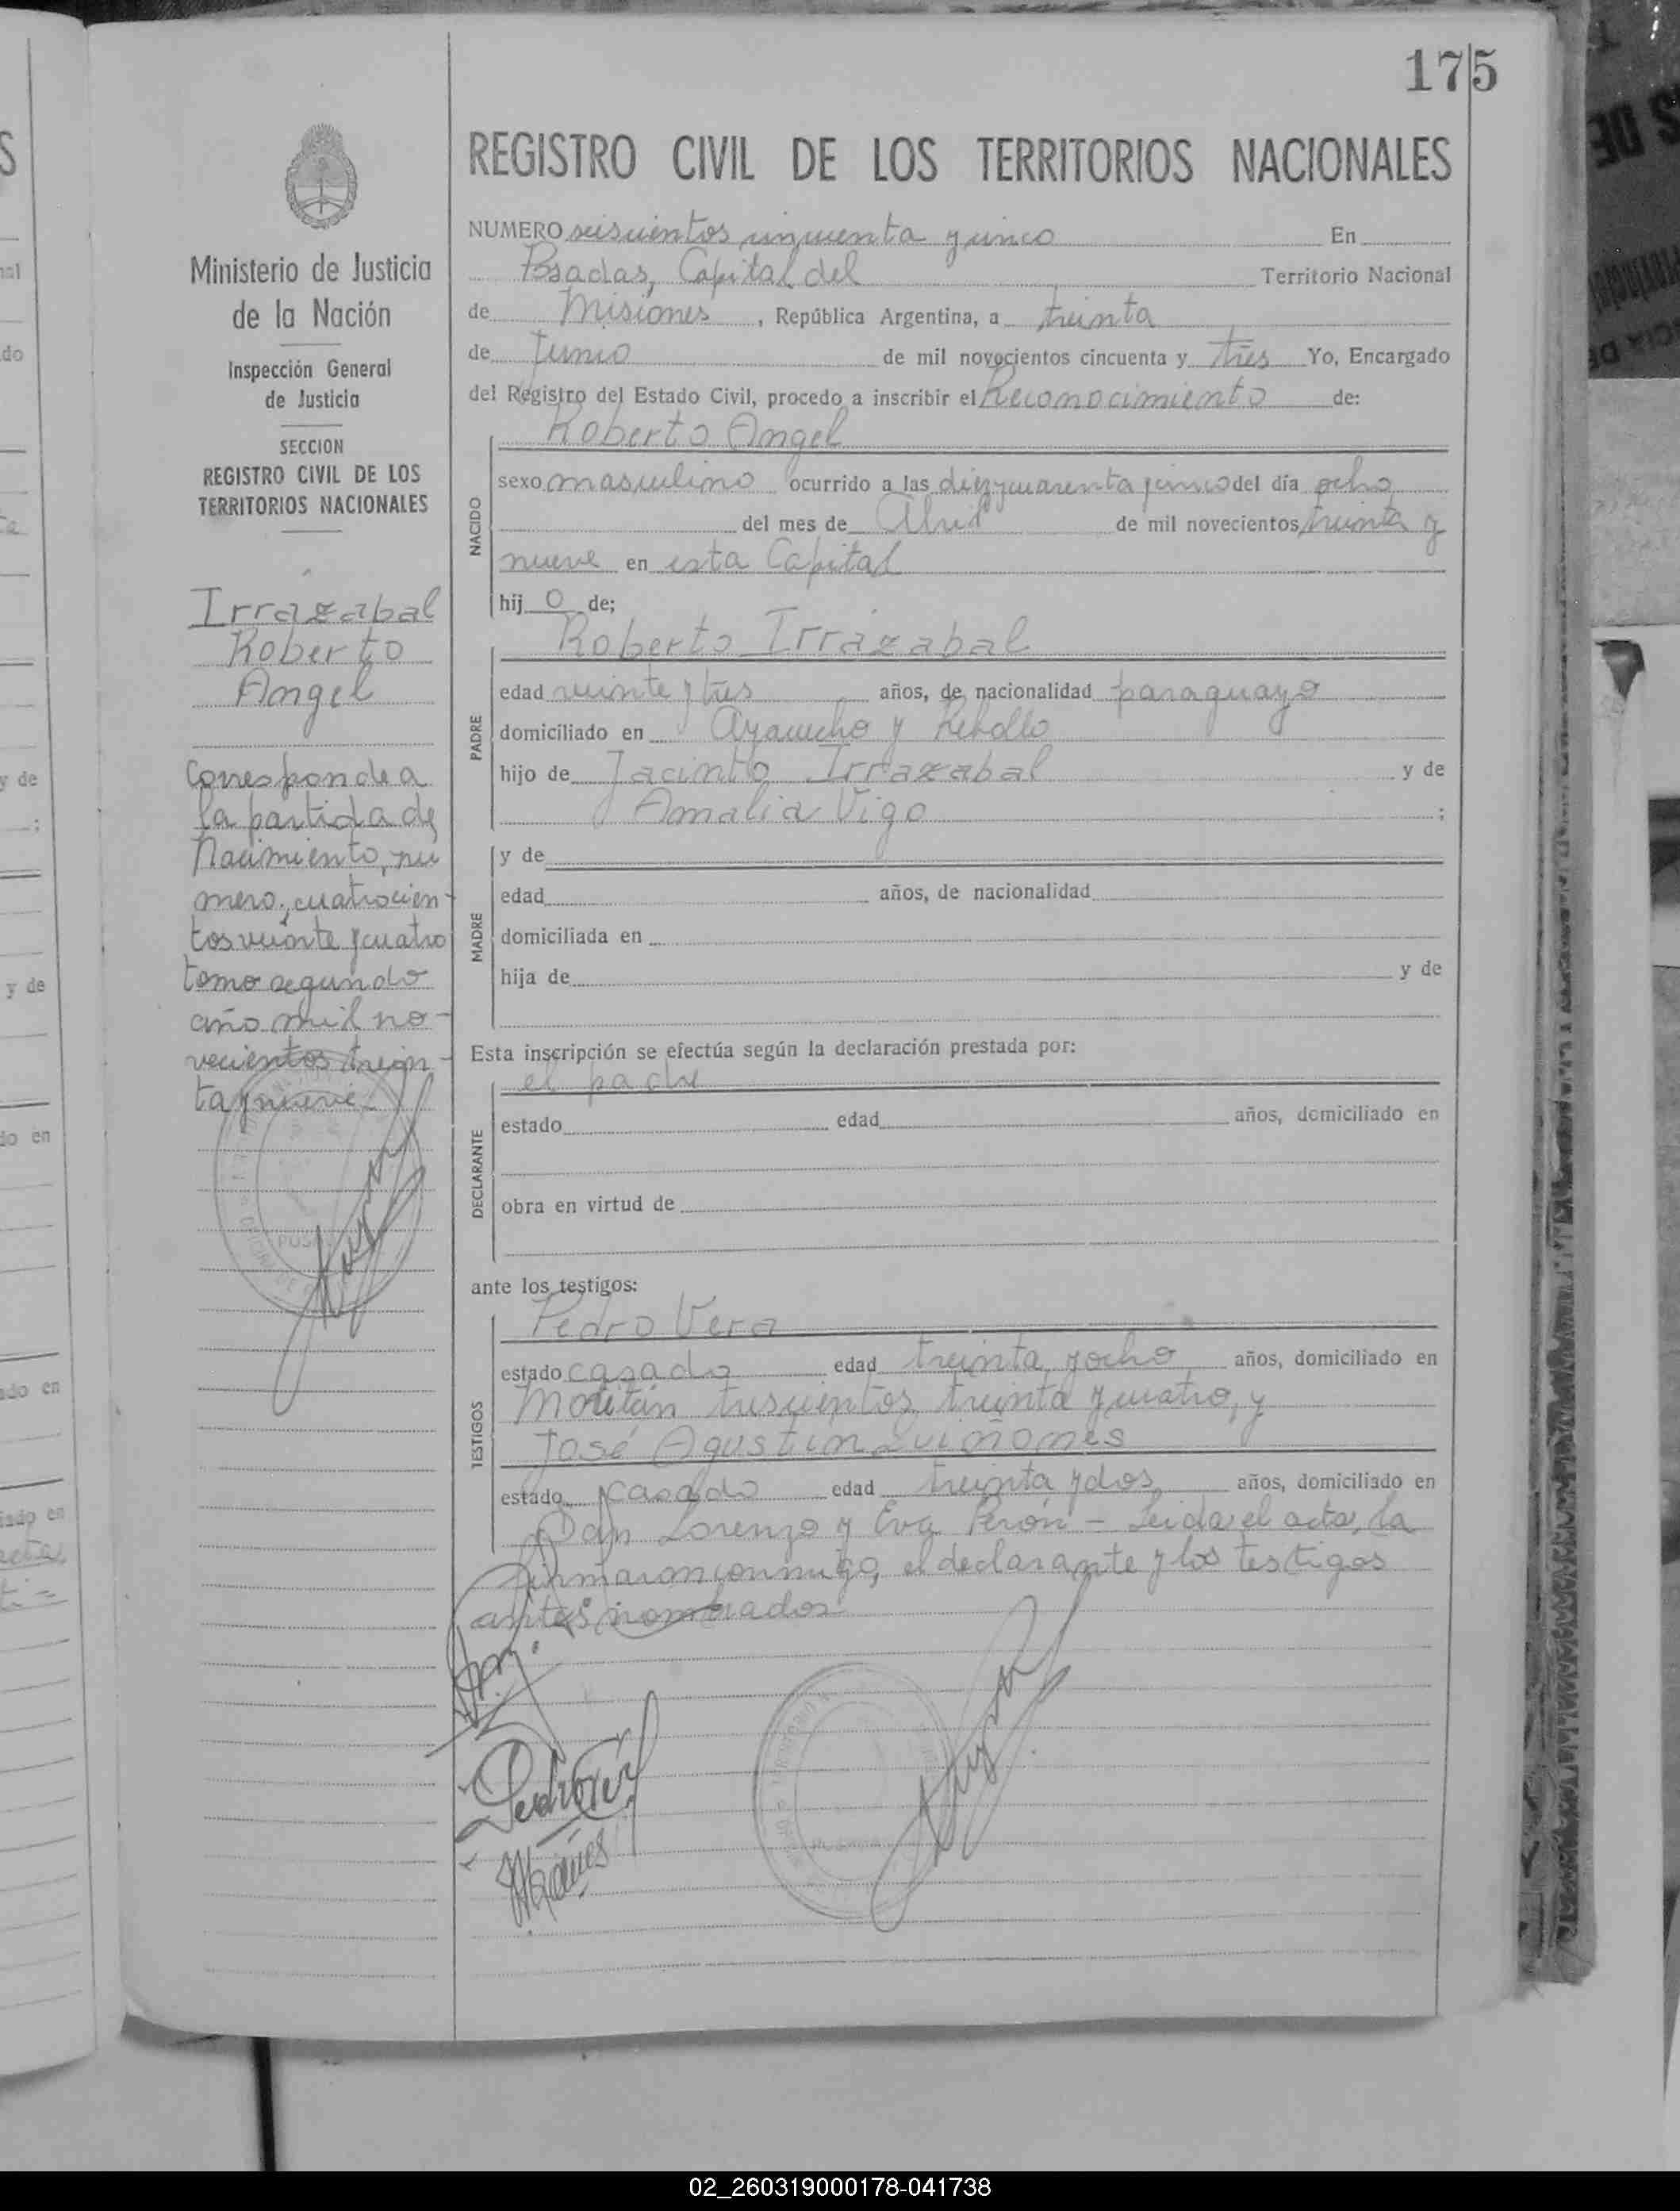 175
REGISTRO CIVIL DE LOS TERRITORIOS NACIONALES
Ministerio de Justicia
de la Nación
Inspección General
de Justicia
SECCION
REGISTRO CIVIL DE LOS
TERRITORIOS NACIONALES
Irrazabal
Roberto
Angel
Corresponde a
la partida de
Nacimiento, nu
mero, cuatrocien-
tos veinte y cuatro
tomo segundo
año mil no-
vecientos trein-
ta y nueve-
NUMERO seiscientos cincuenta y cinco En
Posadas, Capital del Territorio Nacional
de Misiones, República Argentina, a treinta
de Junio de mil novecientos cincuenta y tres Yo, Encargado
del Registro del Estado Civil, procedo a inscribir el Reconocimiento de:
Roberto Angel
NACIDO
sexo masculino ocurrido a las diez y cuarenta y cinco del día ocho
del mes de Abril de mil novecientos treinta y
nueve en esta Capital
hij o de;
Roberto Irrazabal
PADRE
edad veinte y tres años, de nacionalidad paraguayo
domiciliado en Ayacucho y Rebollo
hijo de Jacinto Irrazabal y de
Amalia Vigo ;
MADRE
y de
edad años, de nacionalidad
domiciliada en
hija de y de
Esta inscripción se efectúa según la declaración prestada por:
el padre
DECLARANTE
estado edad años, domiciliado en
obra en virtud de
ante los testigos:
Pedro Vera
TESTIGOS
estado casado edad treinta y ocho años, domiciliado en
trescientos treinta y cuatro, y
José Agustin Quiñones
estado casado edad treinta y dos años, domiciliado en
San Lorenzo y Eva Perón - Leida el acta, la
firmaron conmigo, el declarante y los testigos
antes nombrados
02_260319000178-041738